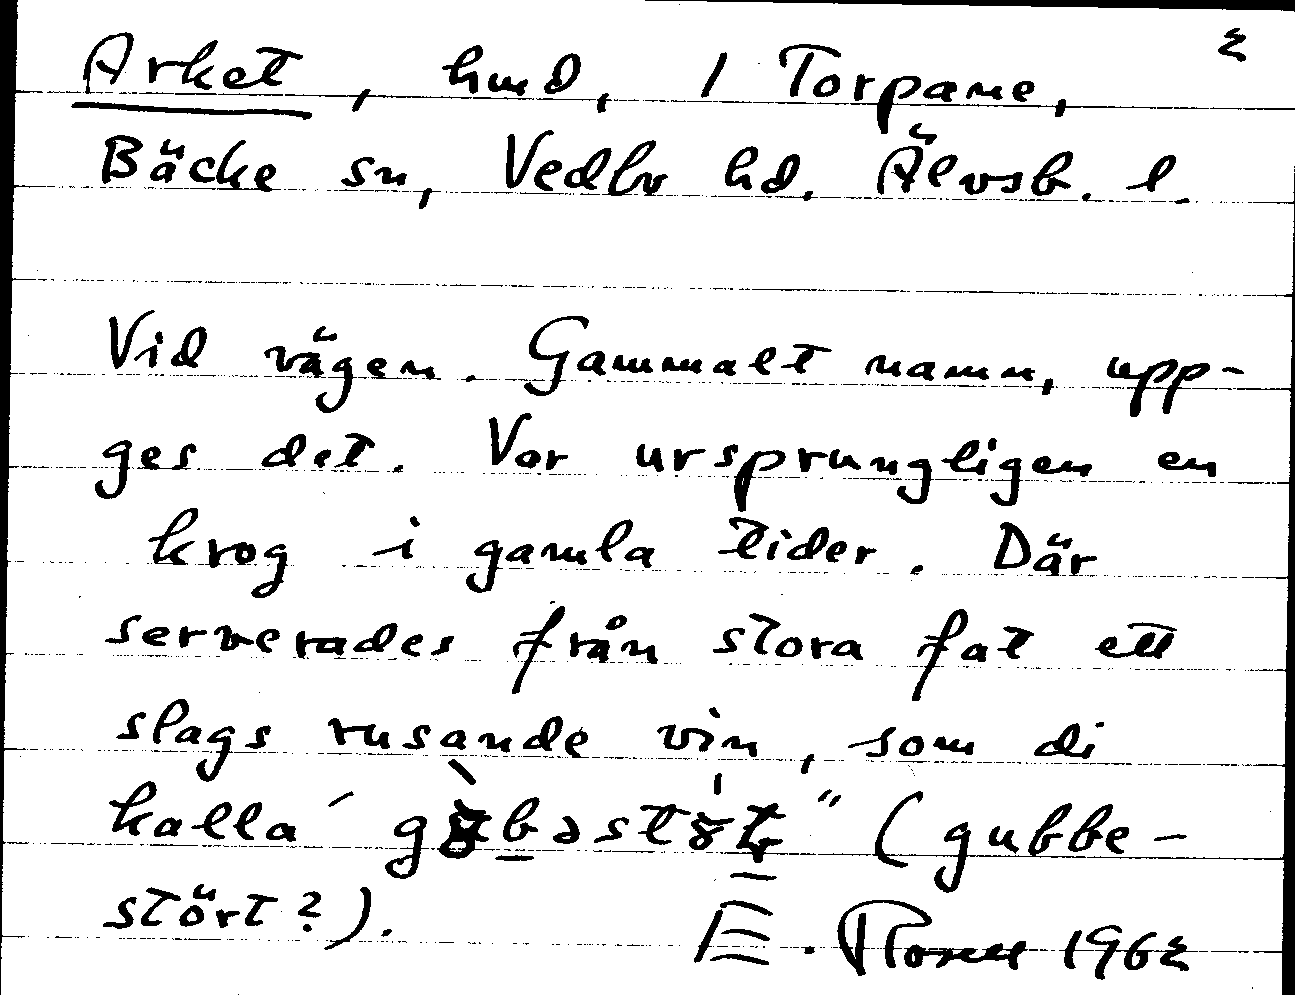 2
Arket, hmd, 1 Torpane,
Bäcke sn, Vedbo hd. Älvsb. l.
Vid vägen. Gammalt namn, upp-
ges det. Vor ursprungligen en
krog i gamla tider. Där
serverades från stora fat ett
slags rusande vin, som di
kalla (gubbe-
stört?).
E. 1962